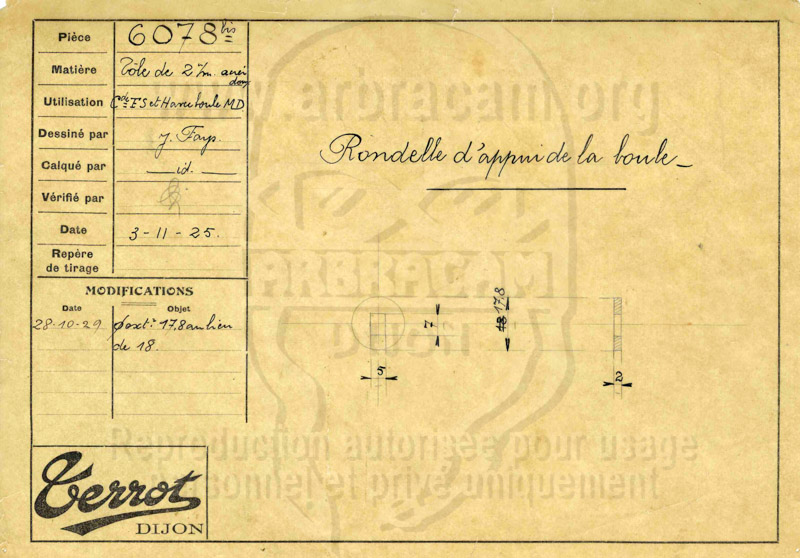 Pièce 6078 bis
Matière Tôle de 2 m/m
Utilisation Cde FS et Harv boule MD
Dessiné par J. Fays.
Calqué par — id. —
Vérifié par
Date 3-11-25.
Repère
de tirage
MODIFICATIONS
Date Objet
28-10-29 φ ext. 17,8 au lieu
de 18.
Rondelle d'appui de la boule
7
18 17,8
5
2
Terrot
DIJON
www.arbracam.org
ARBRACAM
DIJON
Reproduction autorisée pour usage
personnel et privé uniquement